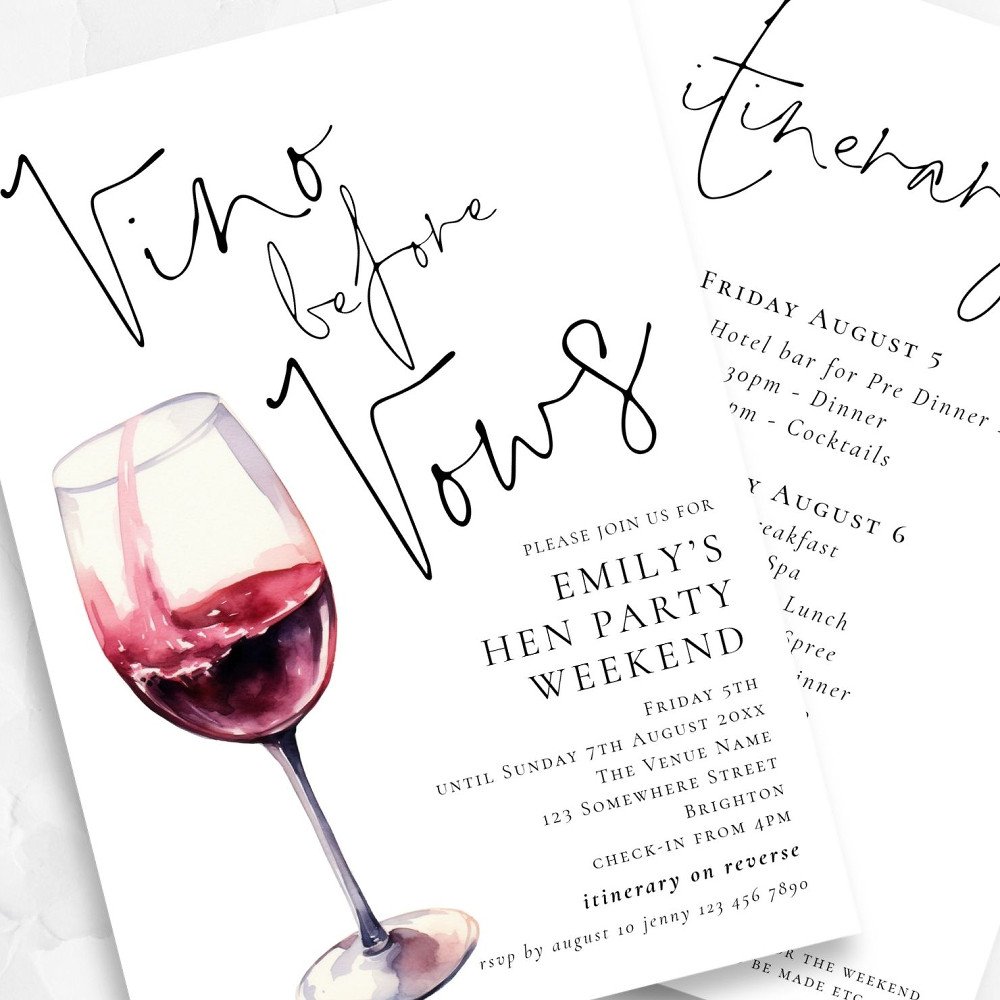 Vino
before
Vows
PLEASE JOIN US FOR
EMILY'S
HEN PARTY
WEEKEND
FRIDAY 5TH
UNTIL SUNDAY 7TH AUGUST 20XX
THE VENUE NAME
123 SOMEWHERE STREET
BRIGHTON
CHECK-IN FROM 4PM
itinerary on reverse
rsvp by august 10 jenny 123 456 7890
itinerary
FRIDAY AUGUST 5
Hotel bar for Pre Dinner -
30pm - Dinner
pm - Cocktails
Y AUGUST 6
eakfast
Spa
Lunch
Spree
inner
R THE WEEKEND
BE MADE ETC